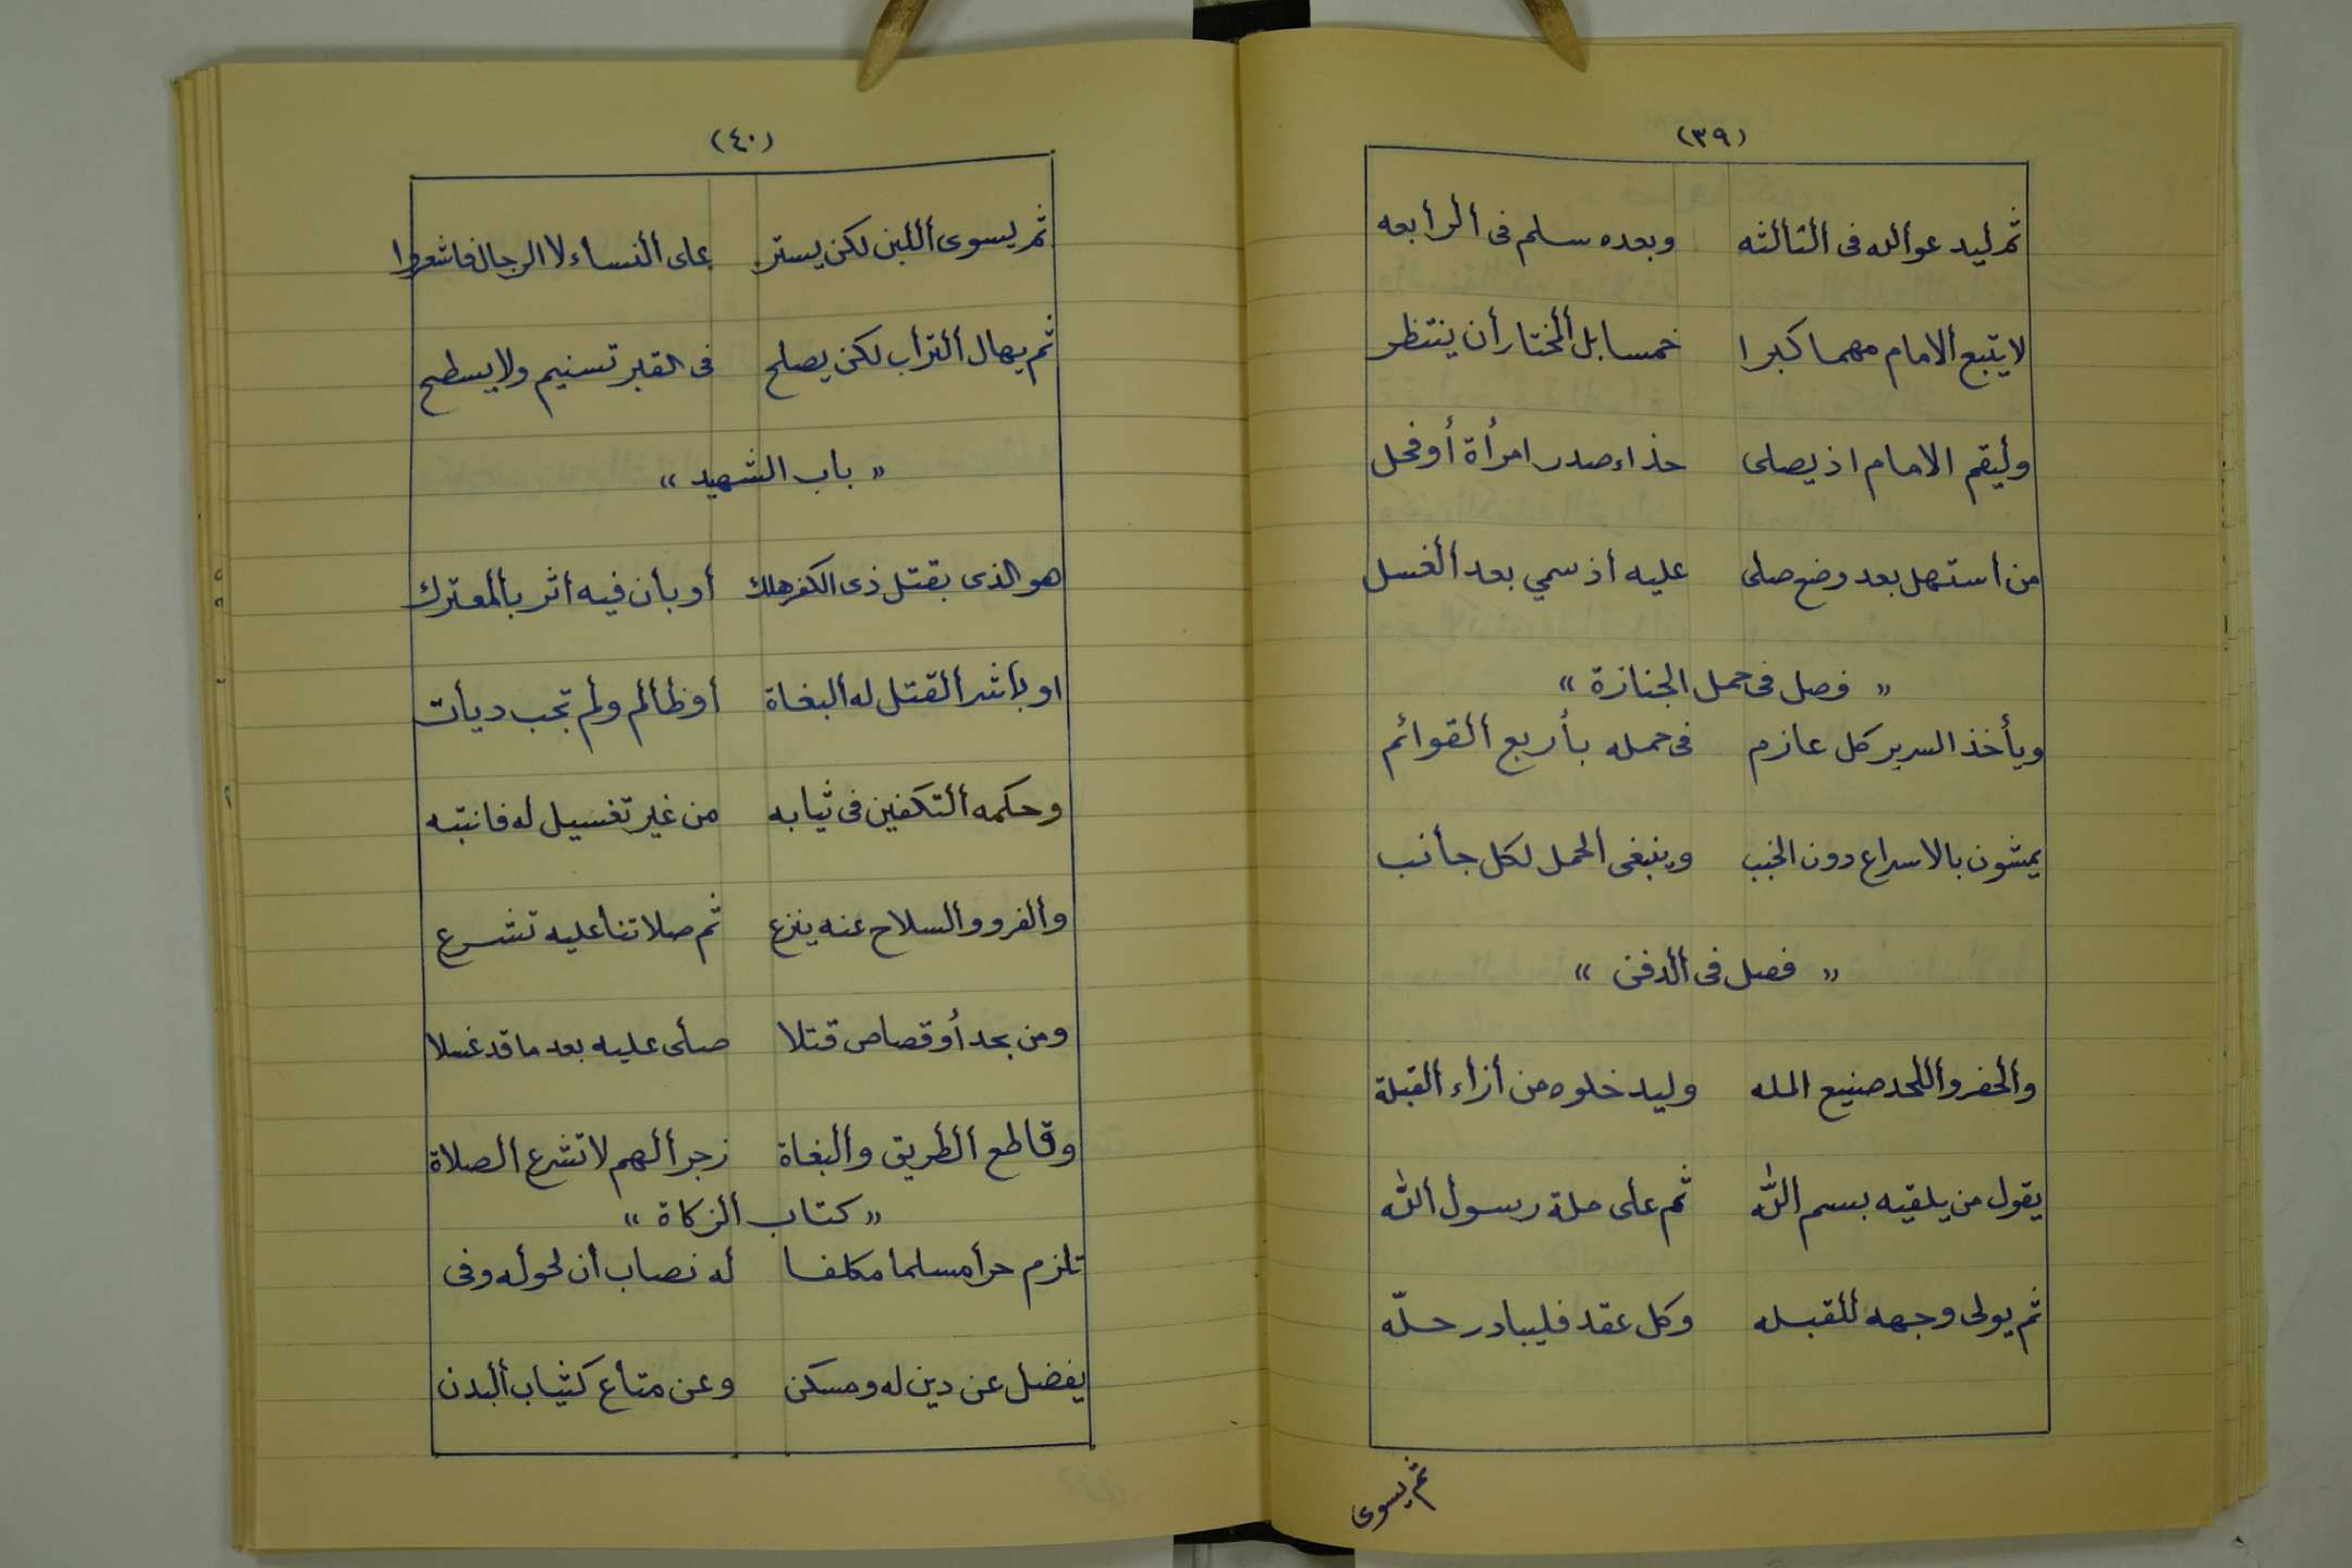 (٣٩)
ثم ليدعو الله فى الثالثه وبعده سلم فى الرابعه
لا يتبع الامام مهما كبرا خمسا بل المختار أن ينتظر
وليقم الامام اذ يصلى حذاء صدر امرأة أو فحل
من استهل بعد وضع صلى عليه اذ سمي بعد الغسل
« فصل فى حمل الجنازة »
ويأخذ السرير كل عازم فى حمله بأربع القوائم
يمشون بالاسراع دون الخبب وينبغى الحمل لكل جانب
« فصل فى الدفن »
والحفر واللحد صنيع المله وليدخلوه من أزاء القبلة
يقول من يلقيه بسم الله ثم على ملة رسول الله
ثم يولى وجهه للقبله وكل عقد فليبادر حلّه
ثم يسوى
(٤٠)
ثم يسوى اللبن لكن يستر على النساء لا الرجال فاشعروا
ثم يهال التراب لكن يصلح فى القبر تسنيم ولا يسطح
« باب الشهيد »
هو الذى بقتل ذى الكفر هلك أو بان فيه اثر بالمعترك
او باشر القتل له البغاة أو ظالم ولم تجب ديات
وحكمه التكفين فى ثيابه من غير تغسيل له فانتبه
والفرو والسلاح عنه ينزع ثم صلاتنا عليه تشرع
ومن بحد أو قصاص قتلا صلى عليه بعد ما قد غسلا
وقاطع الطريق والبغاة زجرا لهم لا تشرع الصلاة
« كتاب الزكاة »
تلزم حرا مسلما مكلفا له نصاب ان لحوله وفى
يفضل عن دين له ومسكن وعن متاع كثياب البدن